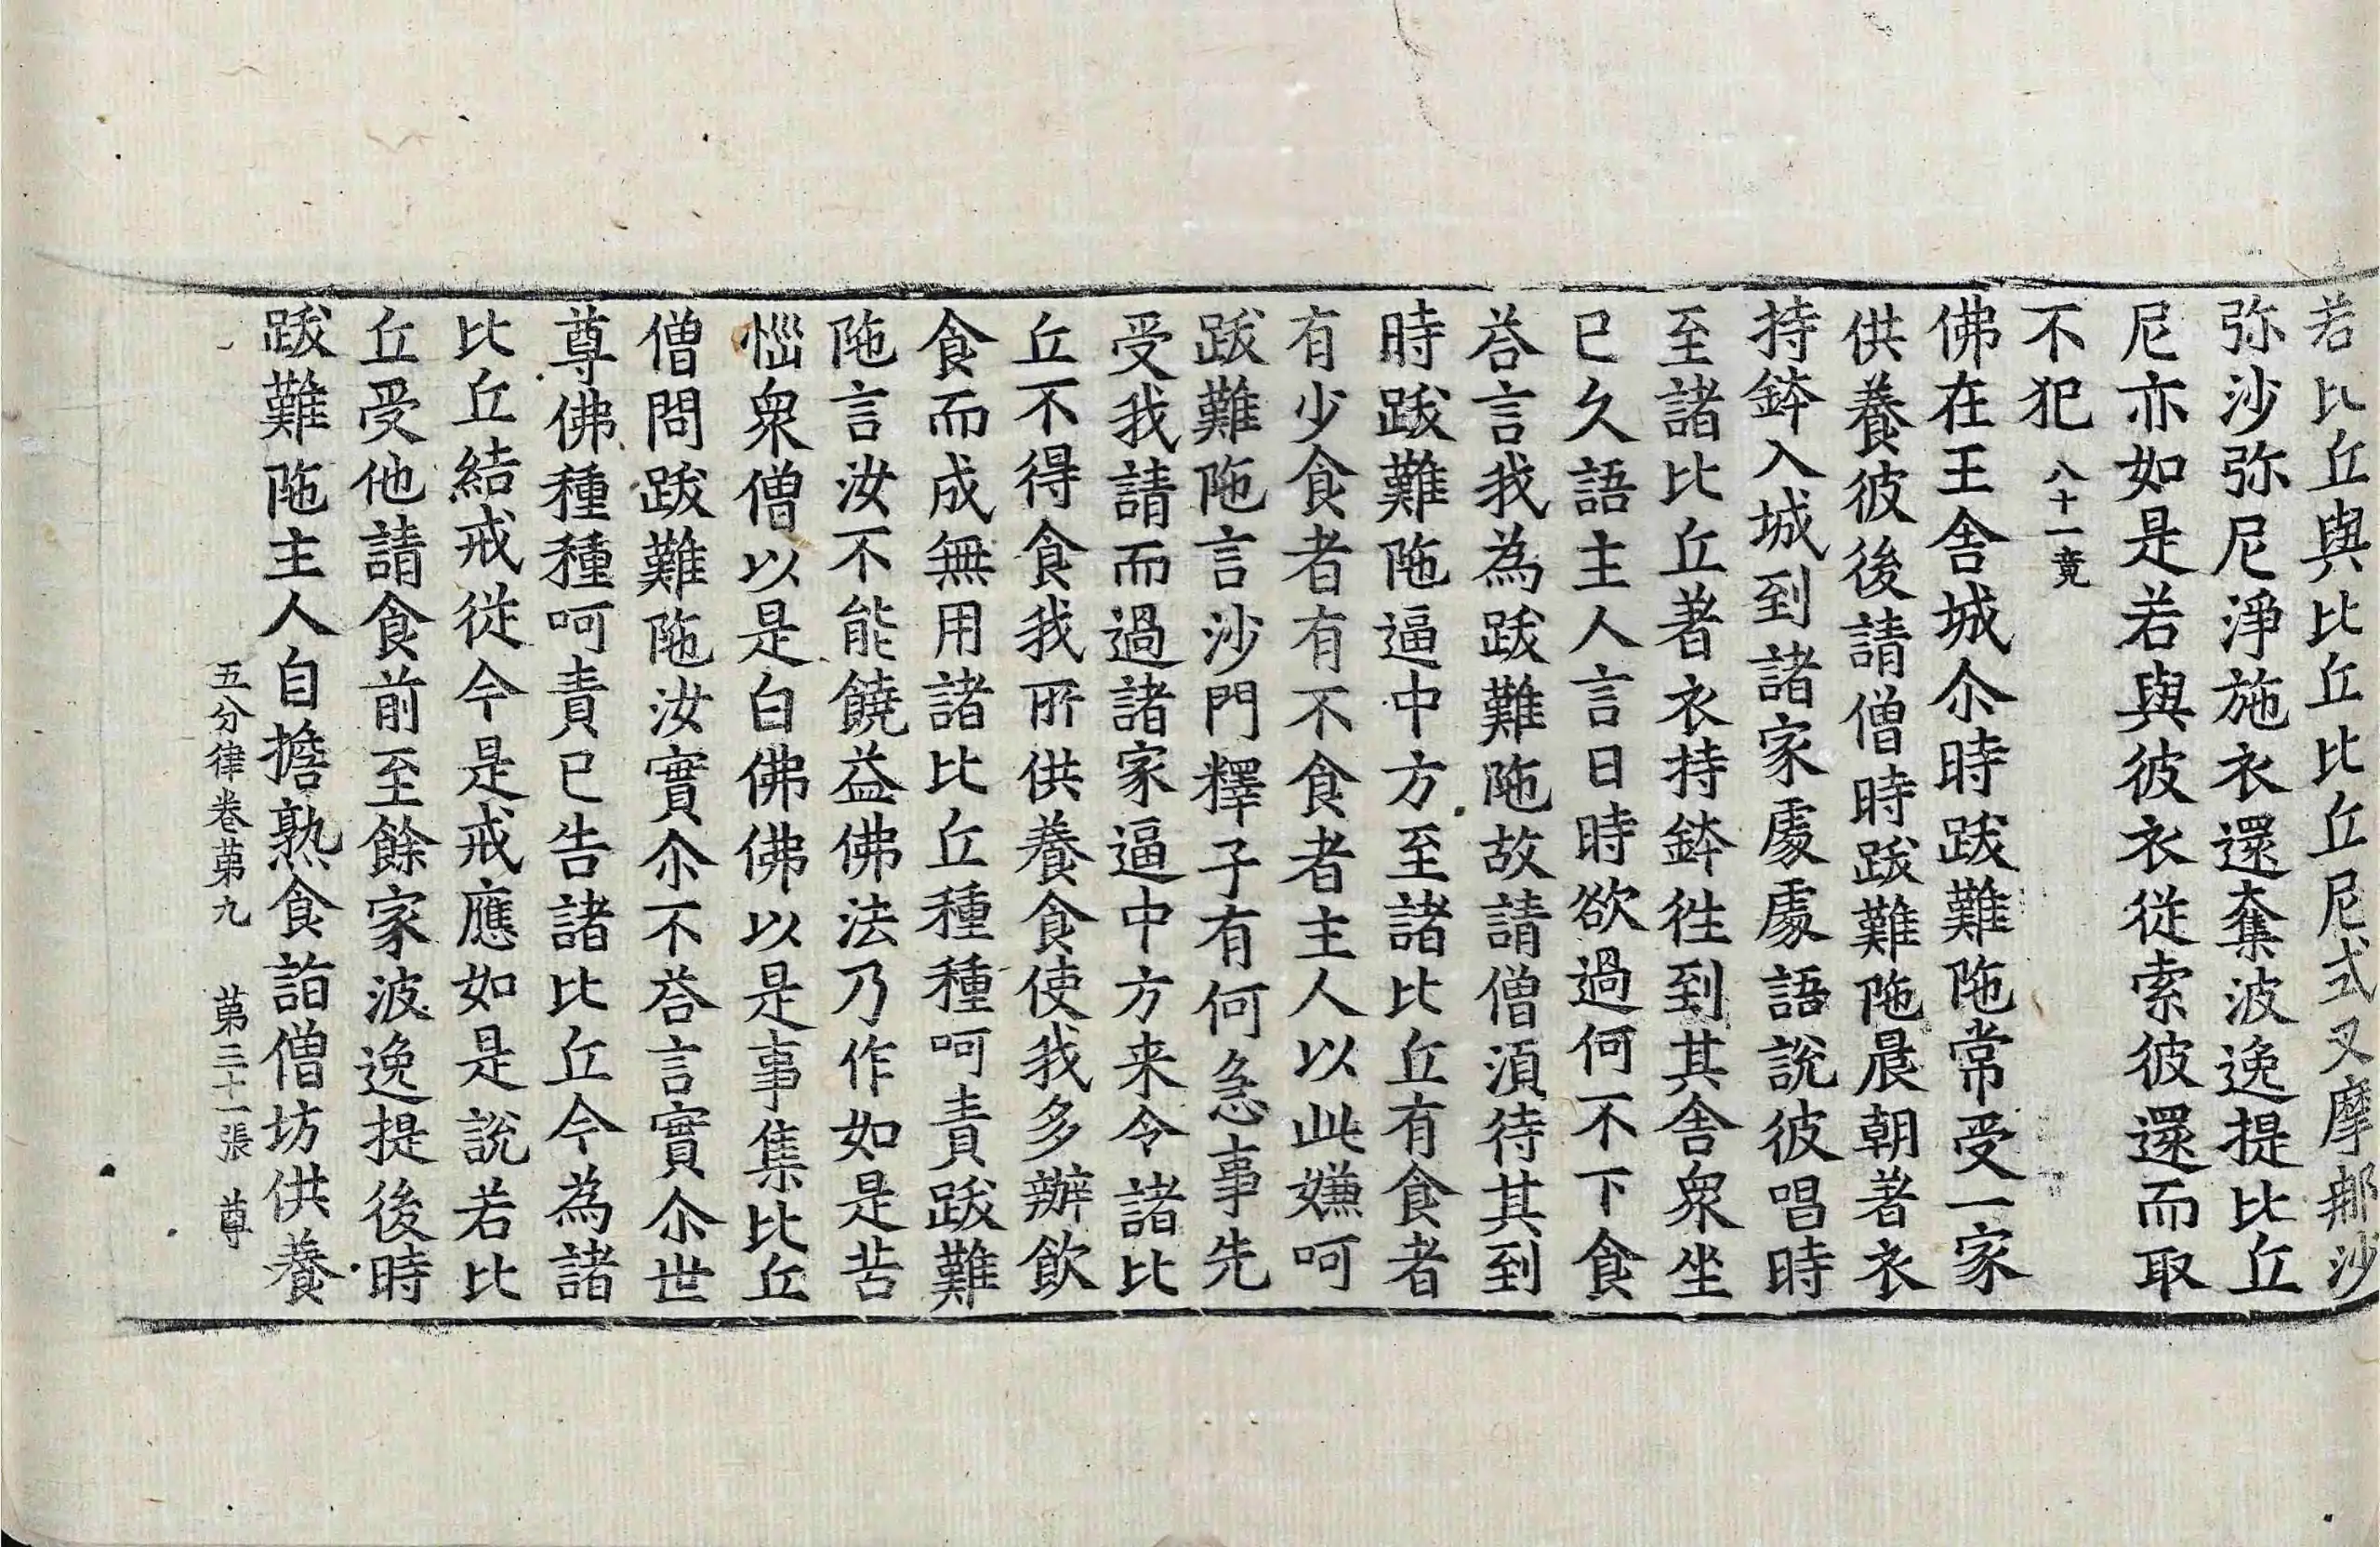 若比丘與比丘比丘尼式叉摩那沙
弥沙弥尼淨施衣還奪波逸提比丘
尼亦如是若與彼衣從索彼還而取
不犯 八十一竟
佛在王舍城尒時跋難陁常受一家
供養彼後請僧時跋難陁晨朝著衣
持鉢入城到諸家處處語說彼唱時
至諸比丘著衣持鉢徃到其舍衆坐
已久語主人言日時欲過何不下食
荅言我為跋難陁故請僧湏待其到
時跋難陁逼中方至諸比丘有食者
有少食者有不食者主人以此嫌呵
跋難陁言沙門釋子有何急事先
受我請而過諸家逼中方来令諸比
丘不得食我所供養食使我多辦飲
食而成無用諸比丘種種呵責跋難
陁言汝不能饒益佛法乃作如是苦
惱衆僧以是白佛佛以是事集比丘
僧問跋難陁汝實尒不荅言實尒世
尊佛種種呵責已告諸比丘今為諸
比丘結戒從今是戒應如是說若比
丘受他請食前至餘家波逸提後時
跋難陁主人自擔熟食詣僧坊供養
五分律卷苐九 苐三十一張 尊